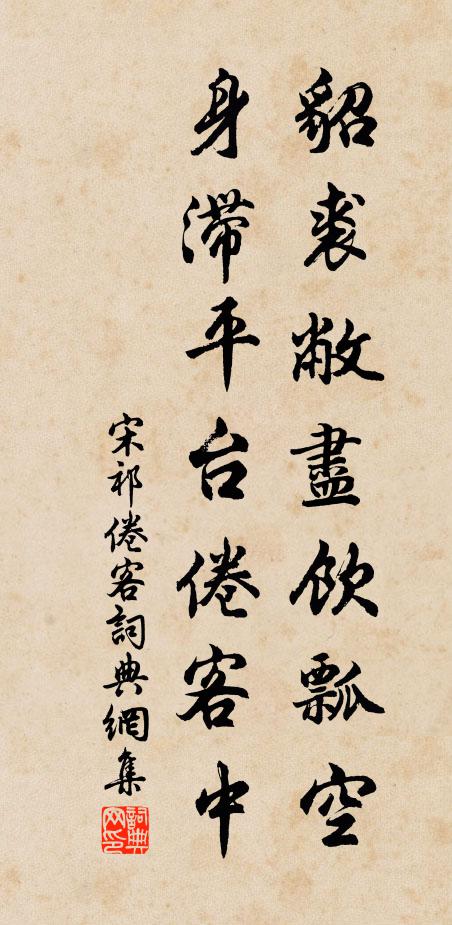 貂裘敝盡飲瓢空
身滯平台倦客中
宋祁倦客詞典網集
詞典网印